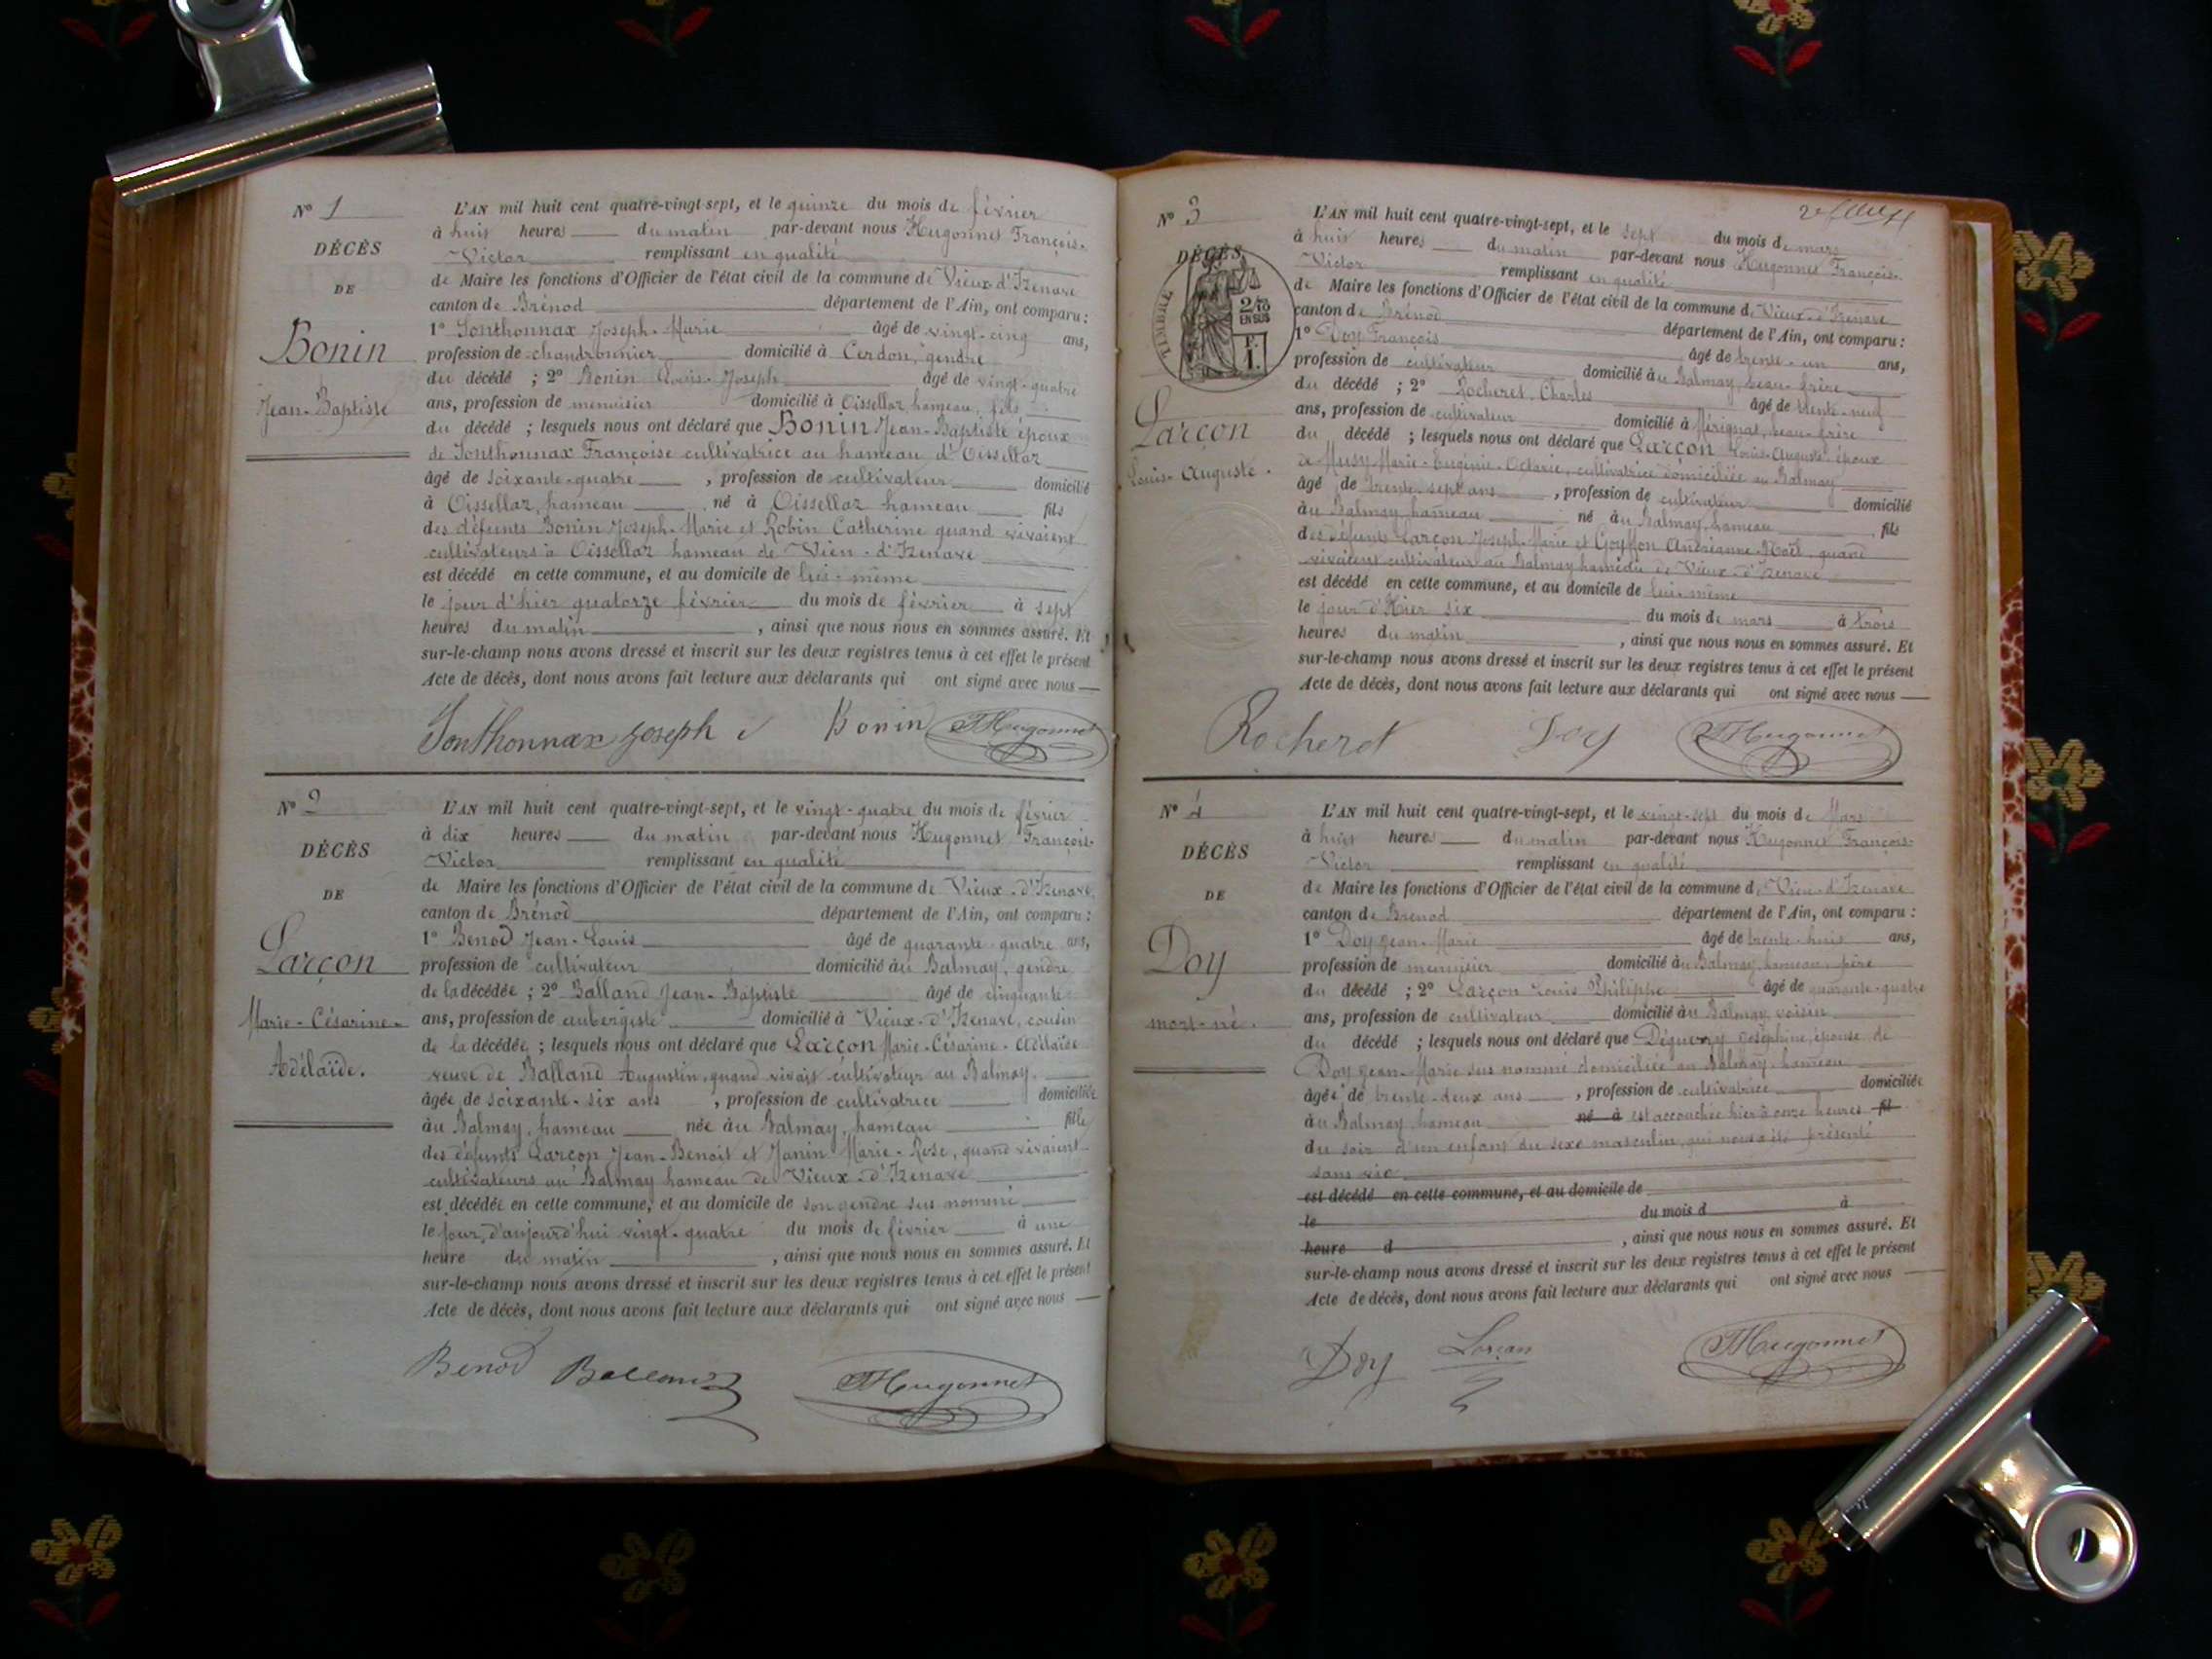 N° 1
DÉCÈS
DE
Bonin
Jean-Baptiste
L'AN mil huit cent quatre-vingt-sept, et le quinze du mois de février
à huit heures du matin par-devant nous Hugonnet François-
Victor remplissant en qualité
de Maire les fonctions d'Officier de l'état civil de la commune de Vieux d'Izenave
canton de Brénod département de l'Ain, ont comparu :
1° Sonthonnax Joseph-Marie âgé de vingt-cinq ans,
profession de chaudronnier domicilié à Cerdon, gendre
du décédé ; 2° Bonin Louis-Joseph âgé de vingt-quatre
ans, profession de menuisier domicilié à Oissellaz, hameau, fils
du décédé ; lesquels nous ont déclaré que Bonin Jean-Baptiste époux
de Sonthonnax Françoise cultivatrice au hameau d'Oissellaz
âgé de soixante-quatre , profession de cultivateur domicilié
à Oissellaz, hameau né à Oissellaz hameau fils
des défunts Bonin Joseph-Marie et Robin Catherine quand vivaient
cultivateurs à Oissellaz hameau de Vieu-d'Izenave
est décédé en cette commune, et au domicile de lui-même
le jour d'hier quatorze février du mois de février à sept
heures du matin , ainsi que nous nous en sommes assuré. Et
sur-le-champ nous avons dressé et inscrit sur les deux registres tenus à cet effet le présent
Acte de décès, dont nous avons fait lecture aux déclarants qui ont signé avec nous
Sonthonnax Joseph Bonin Hugonnet
N° 2
DÉCÈS
DE
Larçon
Marie-Césarine-
Adélaïde.
L'AN mil huit cent quatre-vingt-sept, et le vingt-quatre du mois de février
à dix heures du matin par-devant nous Hugonnet François-
Victor remplissant en qualité
de Maire les fonctions d'Officier de l'état civil de la commune de Vieux-d'Izenave,
canton de Brénod département de l'Ain, ont comparu :
1° Benod Jean-Louis âgé de quarante-quatre ans,
profession de cultivateur domicilié au Balmay, gendre
de la décédée ; 2° Balland Jean-Baptiste âgé de cinquante
ans, profession de aubergiste domicilié à Vieux-d'Izenave, cousin
de la décédée ; lesquels nous ont déclaré que Larçon Marie-Césarine-Adélaïde
veuve de Balland Augustin, quand vivait cultivateur au Balmay,
âgée de soixante-six ans , profession de cultivatrice domiciliée
au Balmay, hameau née au Balmay, hameau fille
des défunts Larçon Jean-Benoit et Janin Marie-Rose, quand vivaient
cultivateurs au Balmay hameau de Vieux-d'Izenave
est décédée en cette commune, et au domicile de son gendre sus nommé
le jour d'aujourd'hui vingt-quatre du mois de février à une
heure du matin , ainsi que nous nous en sommes assuré. Et
sur-le-champ nous avons dressé et inscrit sur les deux registres tenus à cet effet le présent
Acte de décès, dont nous avons fait lecture aux déclarants qui ont signé avec nous
Benod Balland Hugonnet
N° 3
DÉCÈS
TIMBRE
2/10
EN SUS
F.
1.
Larçon
Louis-Auguste.
L'AN mil huit cent quatre-vingt-sept, et le sept du mois de mars
à huit heures du matin par-devant nous Hugonnet François-
Victor remplissant en qualité
de Maire les fonctions d'Officier de l'état civil de la commune de Vieux-d'Izenave
canton de Brénod département de l'Ain, ont comparu :
1° Doy François âgé de trente-un ans,
profession de cultivateur domicilié au Balmay, beau-frère
du décédé ; 2° Rocheret Charles âgé de trente-neuf
ans, profession de cultivateur domicilié à Mérignat, beau-frère
du décédé ; lesquels nous ont déclaré que Larçon Louis-Auguste époux
de Musy Marie-Eugénie-Octavie, cultivatrice domiciliée au Balmay
âgé de trente-sept ans , profession de cultivateur domicilié
au Balmay, hameau né au Balmay, hameau fils
des défunts Larçon Joseph-Marie et Goyffon Andréanne-Noël, quand
vivaient cultivateur au Balmay hameau de Vieux-d'Izenave
est décédé en cette commune, et au domicile de lui-même
le jour d'Hier six du mois de mars à trois
heures du matin , ainsi que nous nous en sommes assuré. Et
sur-le-champ nous avons dressé et inscrit sur les deux registres tenus à cet effet le présent
Acte de décès, dont nous avons fait lecture aux déclarants qui ont signé avec nous
Rocheret Doy Hugonnet
N° 4
DÉCÈS
DE
Doy
mort-né.
L'AN mil huit cent quatre-vingt-sept, et le vingt-sept du mois de Mars
à huit heures du matin par-devant nous Hugonnet François-
Victor remplissant en qualité
de Maire les fonctions d'Officier de l'état civil de la commune de Vieu-d'Izenave
canton de Brénod département de l'Ain, ont comparu :
1° Doy Jean-Marie âgé de trente-huit ans,
profession de menuisier domicilié au Balmay, hameau, père
du décédé ; 2° Larçon Louis Philippe âgé de quarante-quatre
ans, profession de cultivateur domicilié au Balmay, voisin
du décédé ; lesquels nous ont déclaré que Déguerry Joséphine, épouse de
Doy Jean-Marie sus nommé domiciliée au Balmay, hameau
âgée de trente-deux ans , profession de cultivatrice domiciliée
au Balmay hameau né à est accouchée hier à onze heures fil
du soir d'un enfant du sexe masculin, qui nous a été présenté
sans vie
est décédé en cette commune, et au domicile de
le du mois d à
heure d , ainsi que nous nous en sommes assuré. Et
sur-le-champ nous avons dressé et inscrit sur les deux registres tenus à cet effet le présent
Acte de décès, dont nous avons fait lecture aux déclarants qui ont signé avec nous
Doy Larçon Hugonnet